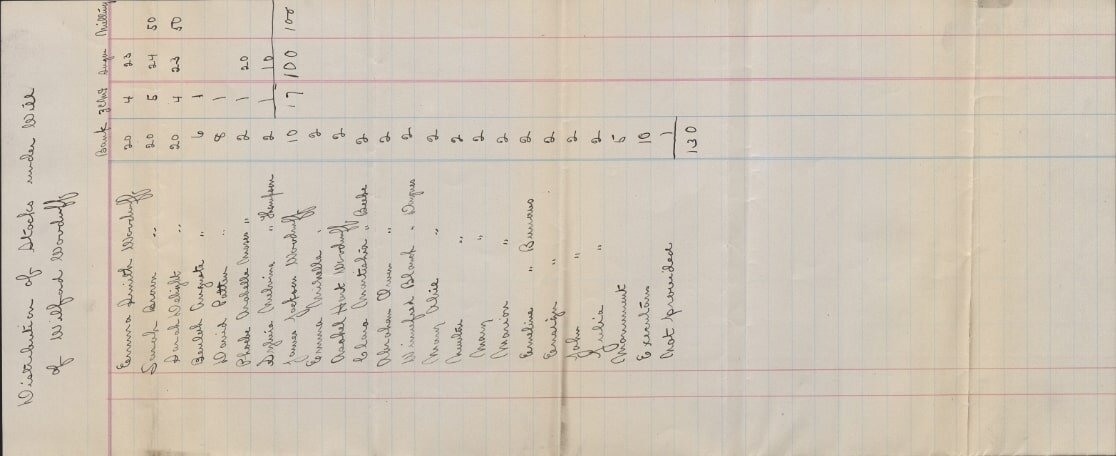 Distribution of Stocks under Will
of Wilford Woodruff
Bank ZCMI Sugar Milling
Emma Smith Woodruff 20 4 23
Sarah Brown " 20 5 24 50
Sarah Delight " 20 4 23 50
Beulah Augusta " 6 1
David Patten " 8 1
Phebe Arabella Moses " 2 1 20
Sylvia Melvina " Thompson 2 1 10
James Jackson Woodruff 10 17 100 100
Emma " 2
Rachel Hart Woodruff 2
Clara " Beebe 2
Abraham Owen " 2
Winnifred Blanch " Daynes 2
Mary Alice " 2
Newton " 2
Mary " 2
Marion " 2
Emeline " Burrows 2
Ensign " 2
John " 2
Julia " 2
Monument 5
Executors 10
Not provided 1
130